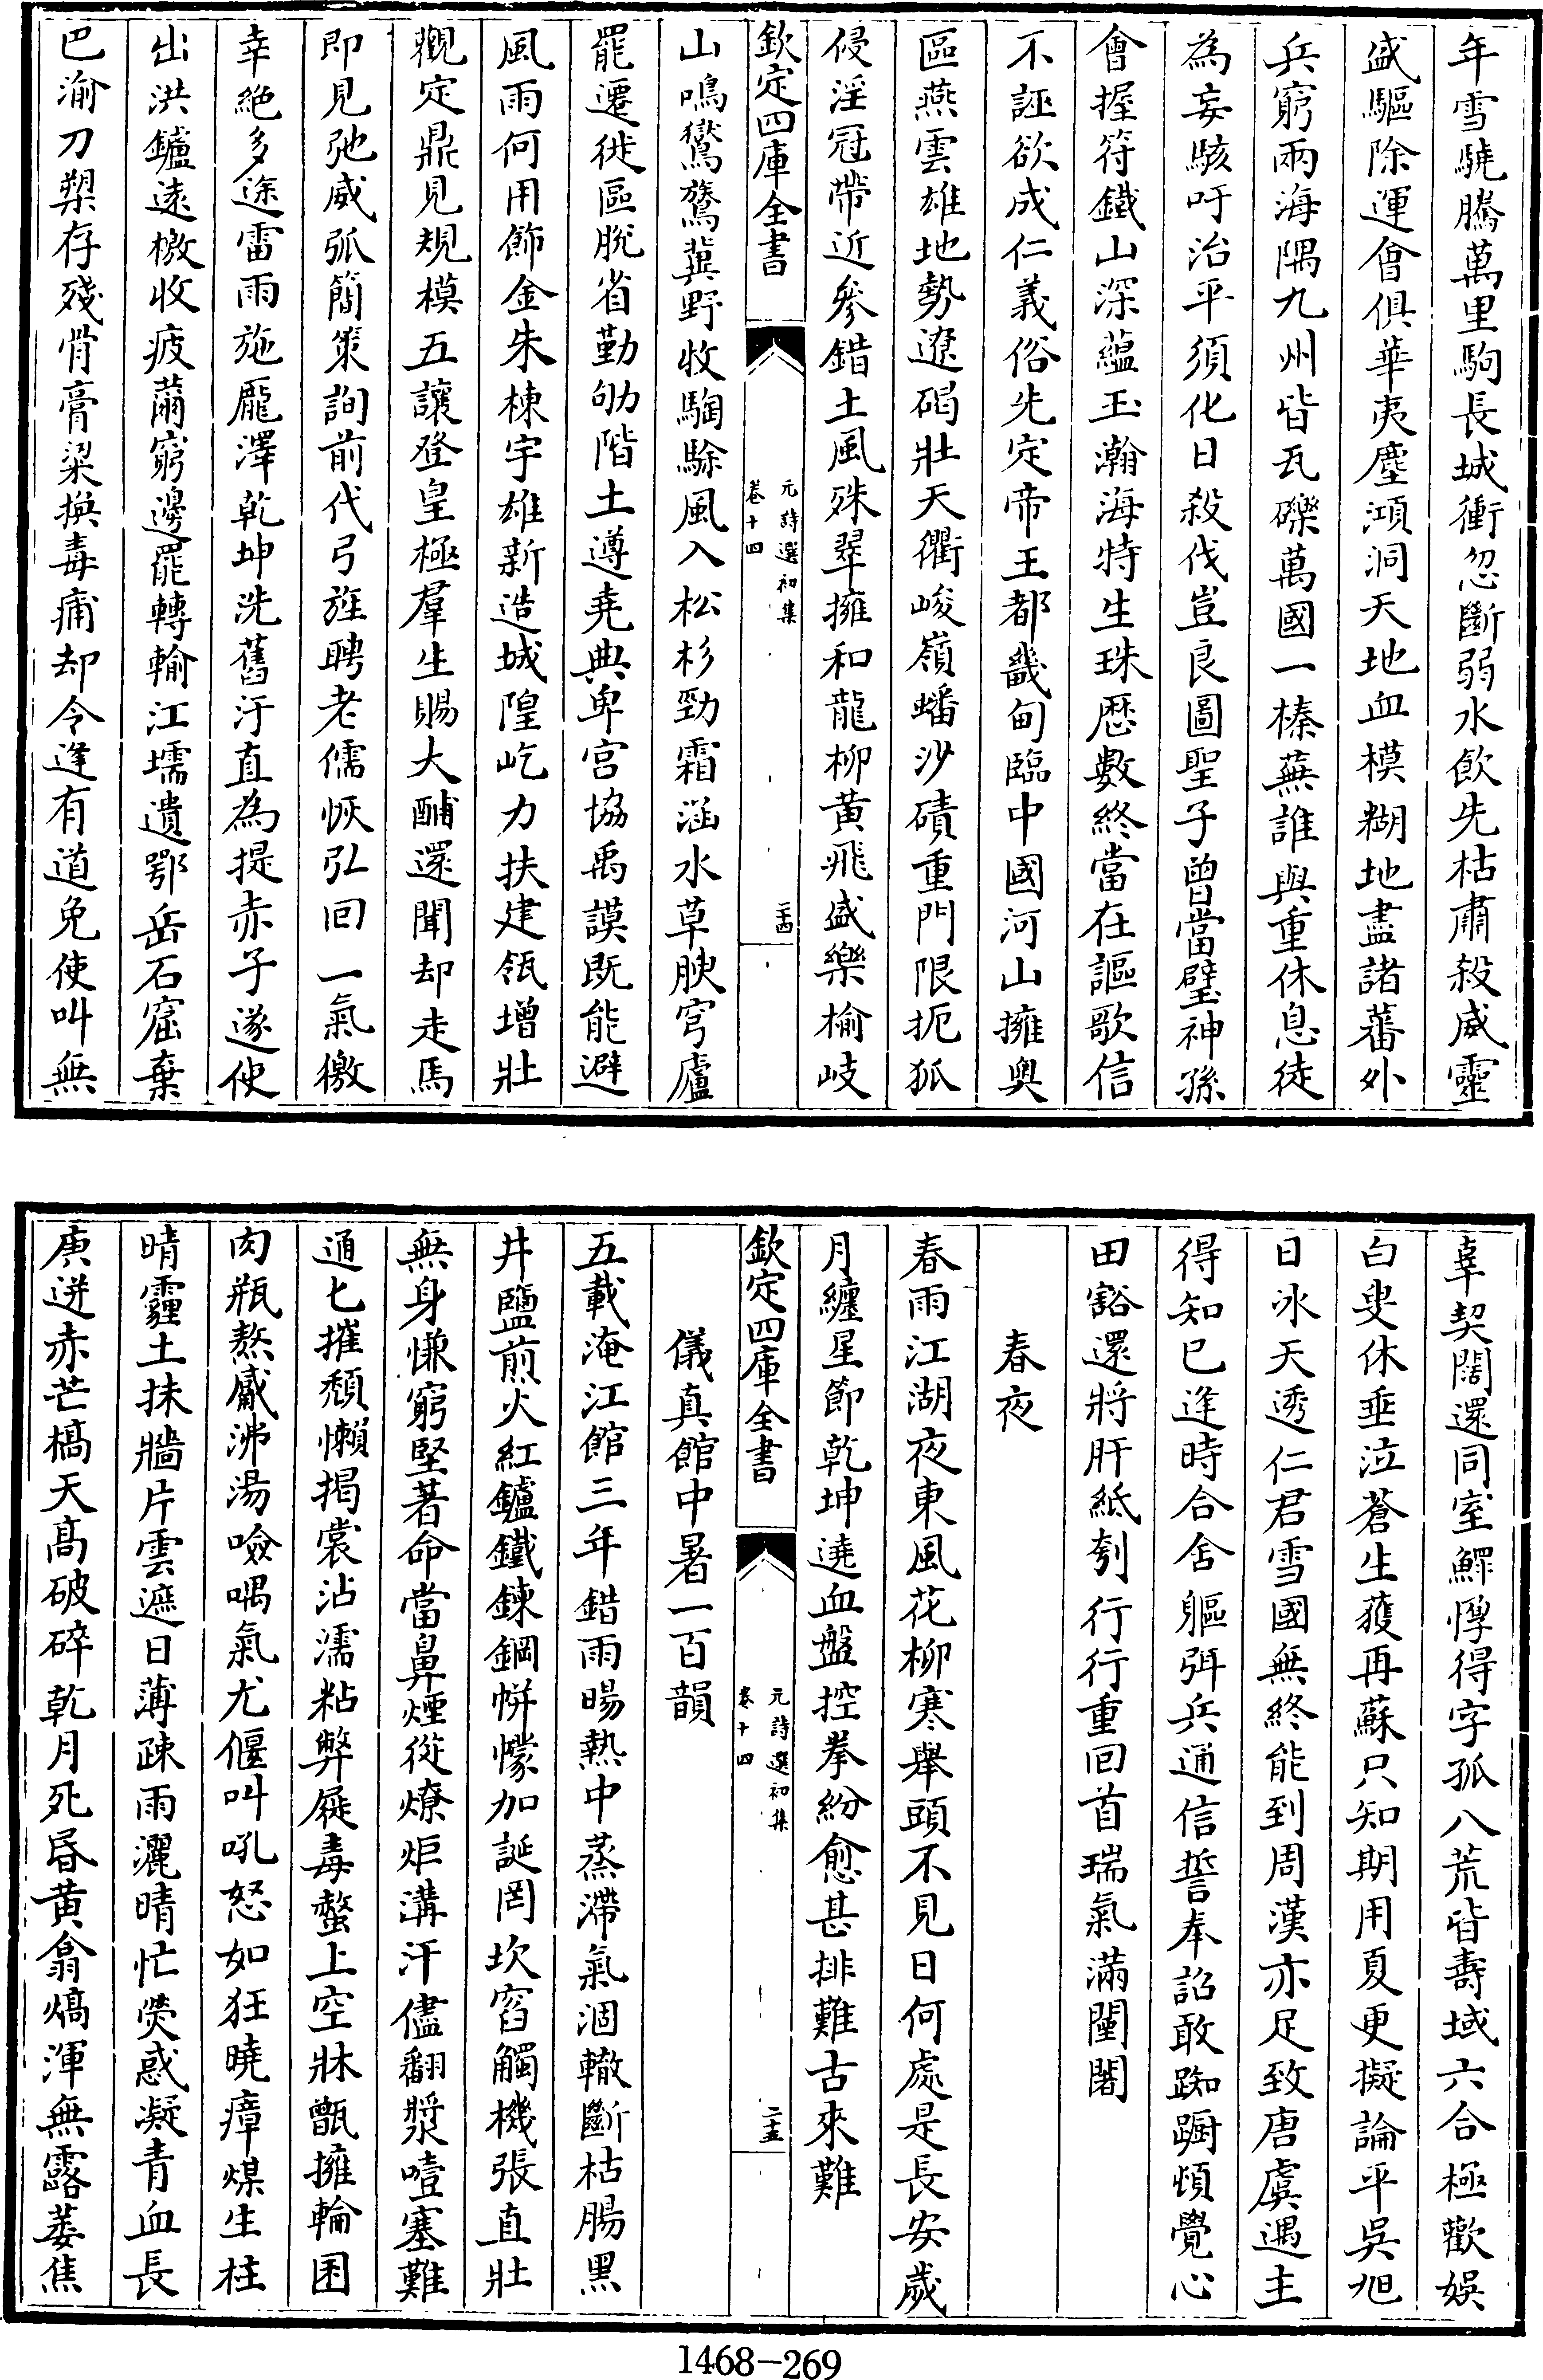 年雪驍騰萬里駒長城衝忽斷弱水飲先枯肅殺威靈
盛驅除運會俱華夷塵澒洞天地血模糊地盡諸蕃外
兵窮兩海隅九州皆瓦礫萬國一榛蕪誰與重休息徒
為妄駭吁治平須化日殺伐豈良圖聖子曾當璧神孫
會握符鐵山深蘊玉瀚海特生珠歴數終當在謳歌信
不誣欲成仁義俗先定帝王都畿甸臨中國河山擁奥
區燕雲雄地勢遼碣壯天衢峻嶺蟠沙磧重門限扼狐
侵淫冠帶近參錯土風殊翠擁和龍柳黄飛盛樂榆岐
欽定四庫全書
元詩選初集
卷十四
二十四
山鳴鸑鷟冀野收騊駼風入松杉勁霜涵水草腴穹廬
罷遷徙區脱省勤劬階土遵堯典卑宫協禹謨既能避
風雨何用飾金朱棟宇雄新造城隍屹力扶建瓴增壯
觀定鼎見規模五讓登皇極羣生賜大酺還聞却走馬
即見弛威弧簡策詢前代弓旌聘老儒恢弘回一氣徼
幸絶多途雷雨施厖澤乾坤洗舊汙直為提赤子遂使
出洪鑪遠檄收疲薾窮邊罷轉輸江壖遺鄂岳石窟棄
巴渝刀槊存殘骨膏粱換毒痡却令逢有道免使叫無
辜契闊還同室鰥惸得字孤八荒皆壽域六合極歡娱
白叟休垂泣蒼生獲再蘇只知期用夏更擬論平吴旭
日冰天透仁君雪國無終能到周漢亦足致唐虞遇主
得知已逢時合舍軀弭兵通信誓奉詔敢踟蹰煩覺心
田豁還將肝紙刳行行重回首瑞氣滿闉闍
春夜
春雨江湖夜東風花柳寒舉頭不見日何處是長安歲
月纏星節乾坤遶血盤控拳紛愈甚排難古來難
欽定四庫全書
元詩選初集
卷十四
二十五
儀真館中暑一百韻
五載淹江館三年錯雨暘熱中蒸滯氣涸轍斷枯腸黑
井鹽煎火紅鑪鐵鍊鋼帡幪加誕罔坎窞觸機張直壯
無身慊窮堅著命當鼻煙從燎炬溝汗儘翻漿噎塞難
通匕摧頽懶揭裳沾濡粘弊屣毒螫上空牀甑擁輪囷
肉瓶熬鬳沸湯噞喁氣尤偃叫吼怒如狂曉瘴煤生柱
晴霾土抹牆片雲遮日薄疎雨灑晴忙熒惑凝青血長
庚迸赤芒槁天髙破碎乾月死昏黄翕熇渾無露萎焦
1468-269